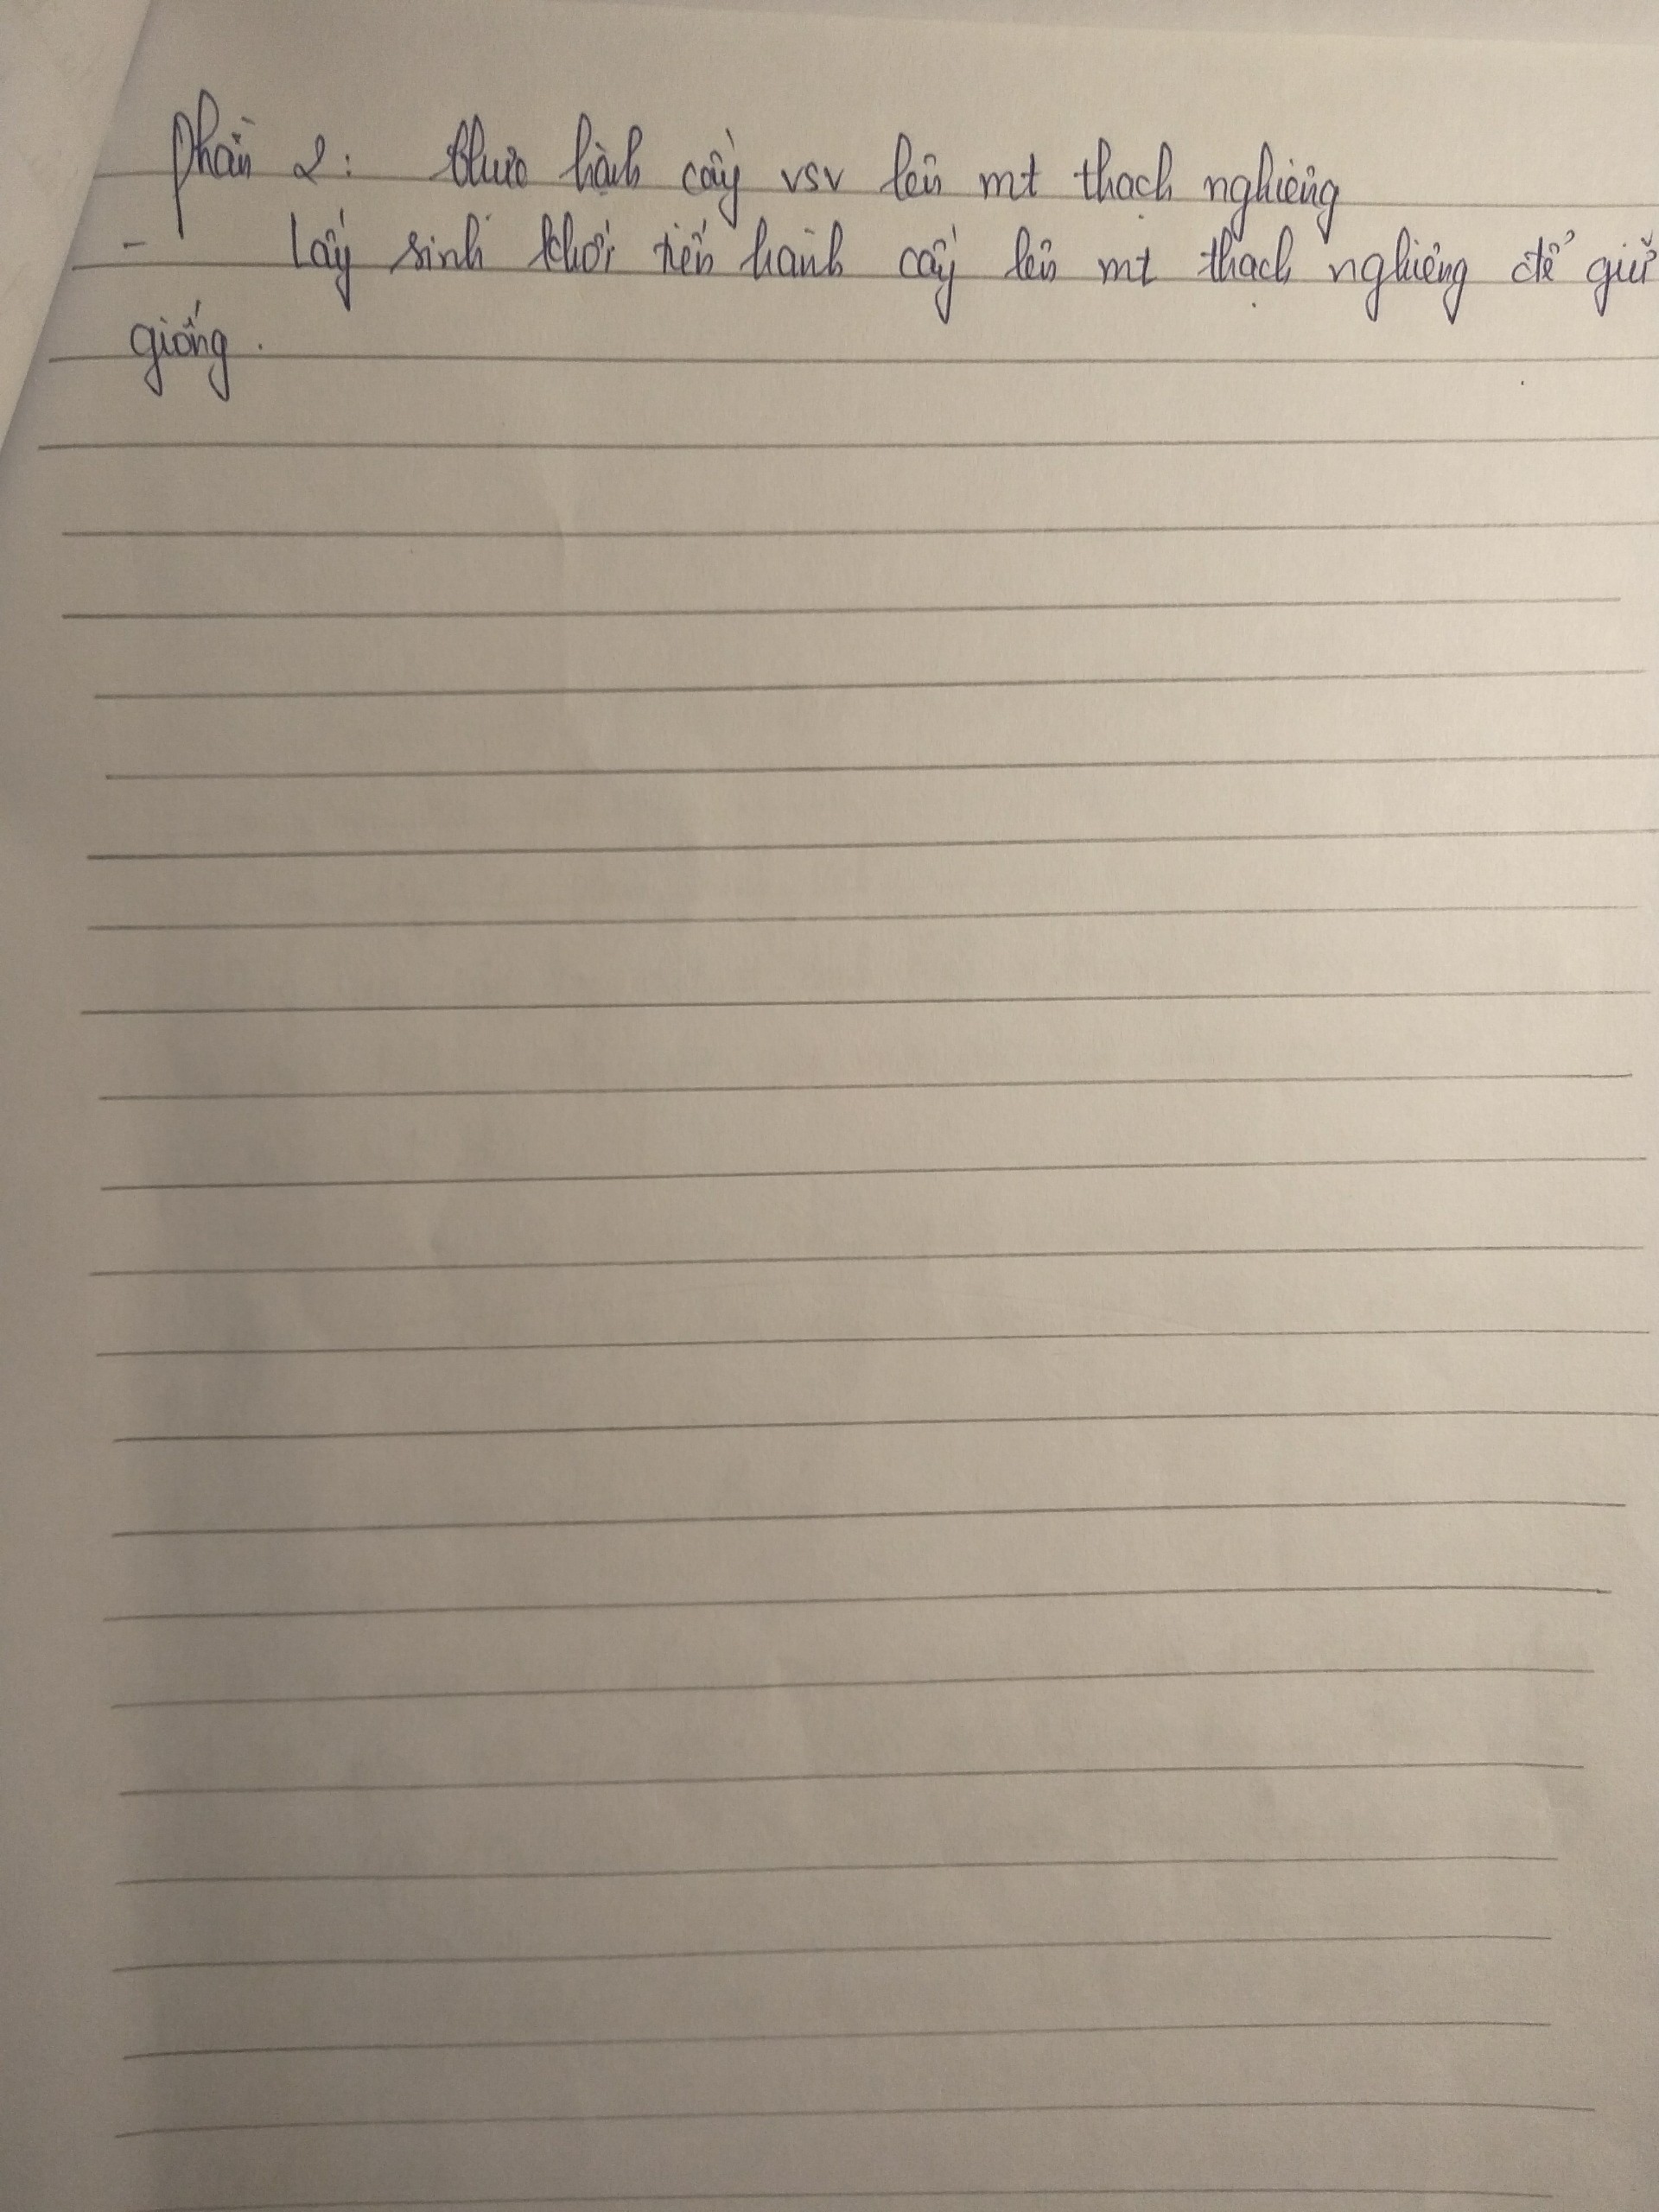 Phần 2: thực hành cấy vsv lên mt thạch nghiêng
- lấy sinh khối tiến hành cấy lên mt thạch nghiêng để giữ
giống.